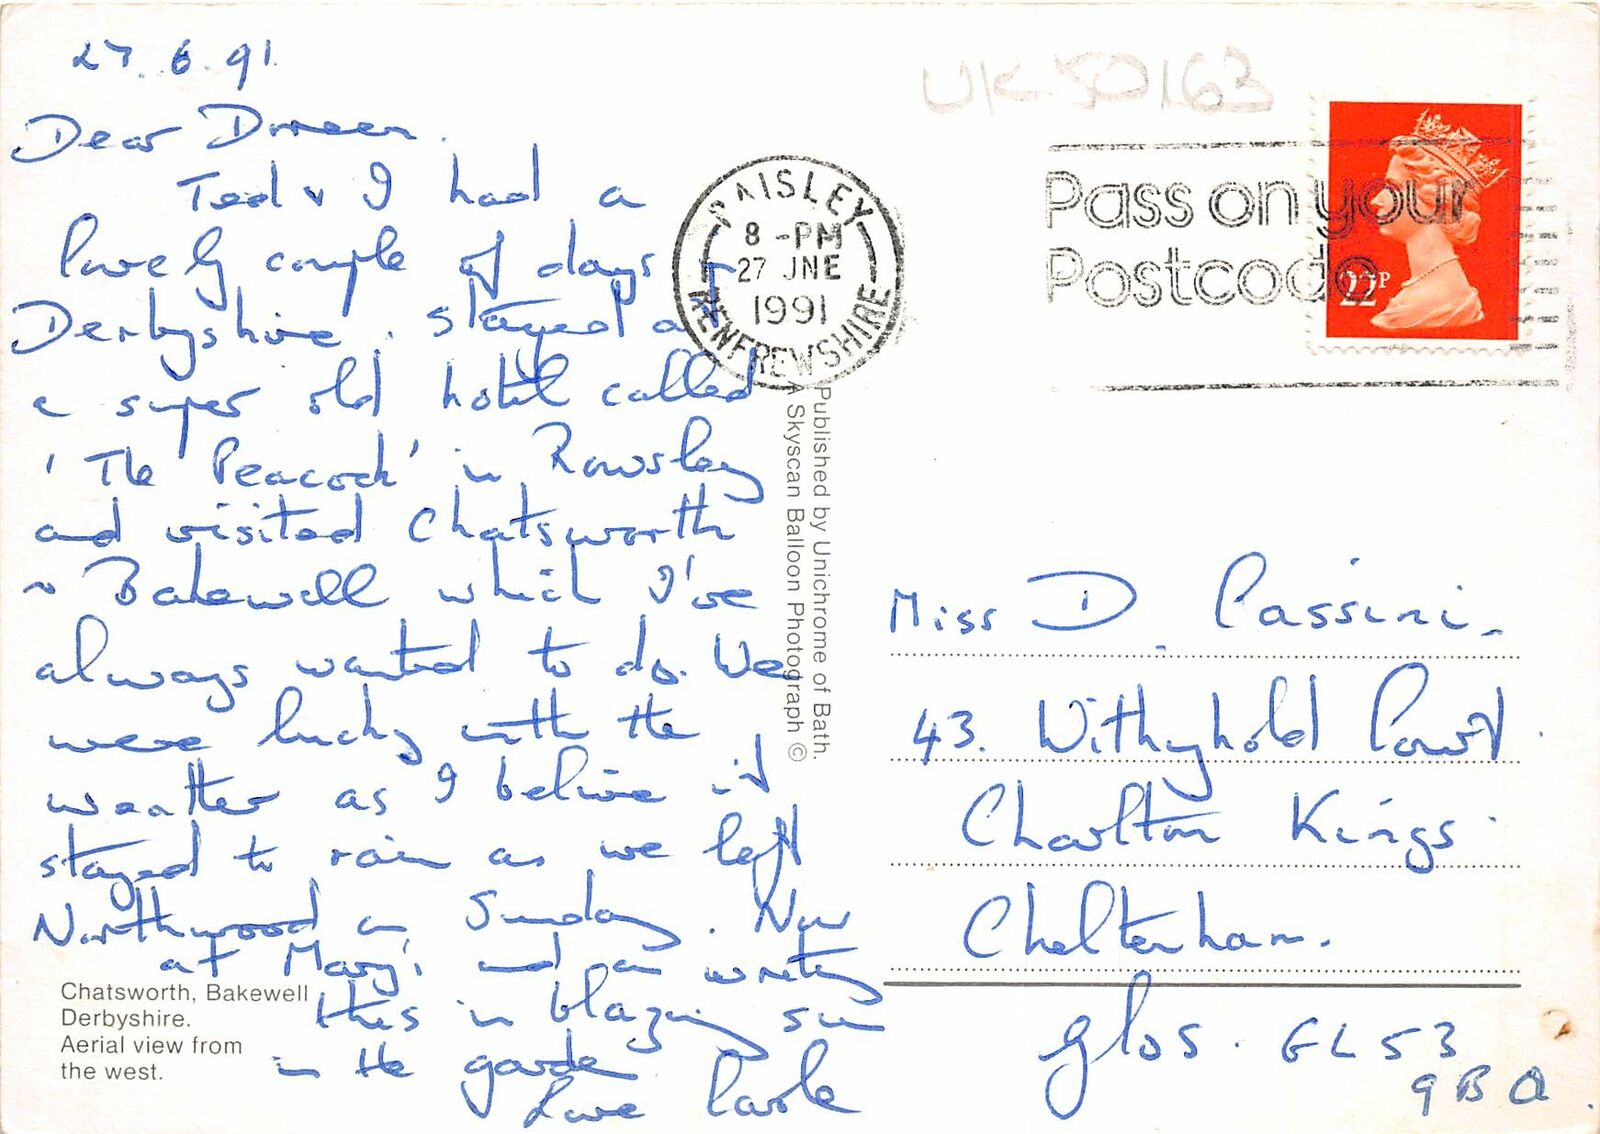 27.6.91.
Dear Doreen.
Ted & I had a
lovely couple of days in
Derbyshire. Stayed at
a super old hotel called
'The Peacock' in Rowsley
and visited Chatsworth
~ Bakewell which I've
always wanted to do. We
were lucky with the
weather as I believe it
stayed to rain as we left
Northwood on Sunday. Now
at Mary's and am writing
this in blazing sun
in the garden
Love Carole
Chatsworth, Bakewell
Derbyshire.
Aerial view from
the west.
Published by Unichrome of Bath.
A Skyscan Balloon Photograph ©
UK50163
PAISLEY
8-PM
27 JNE
1991
RENFREWSHIRE
Pass on your
Postcode
22P
Miss D. Cassini.
43. Withyhold Court.
Charlton Kings.
Cheltenham.
Glos. GL53
9BQ.